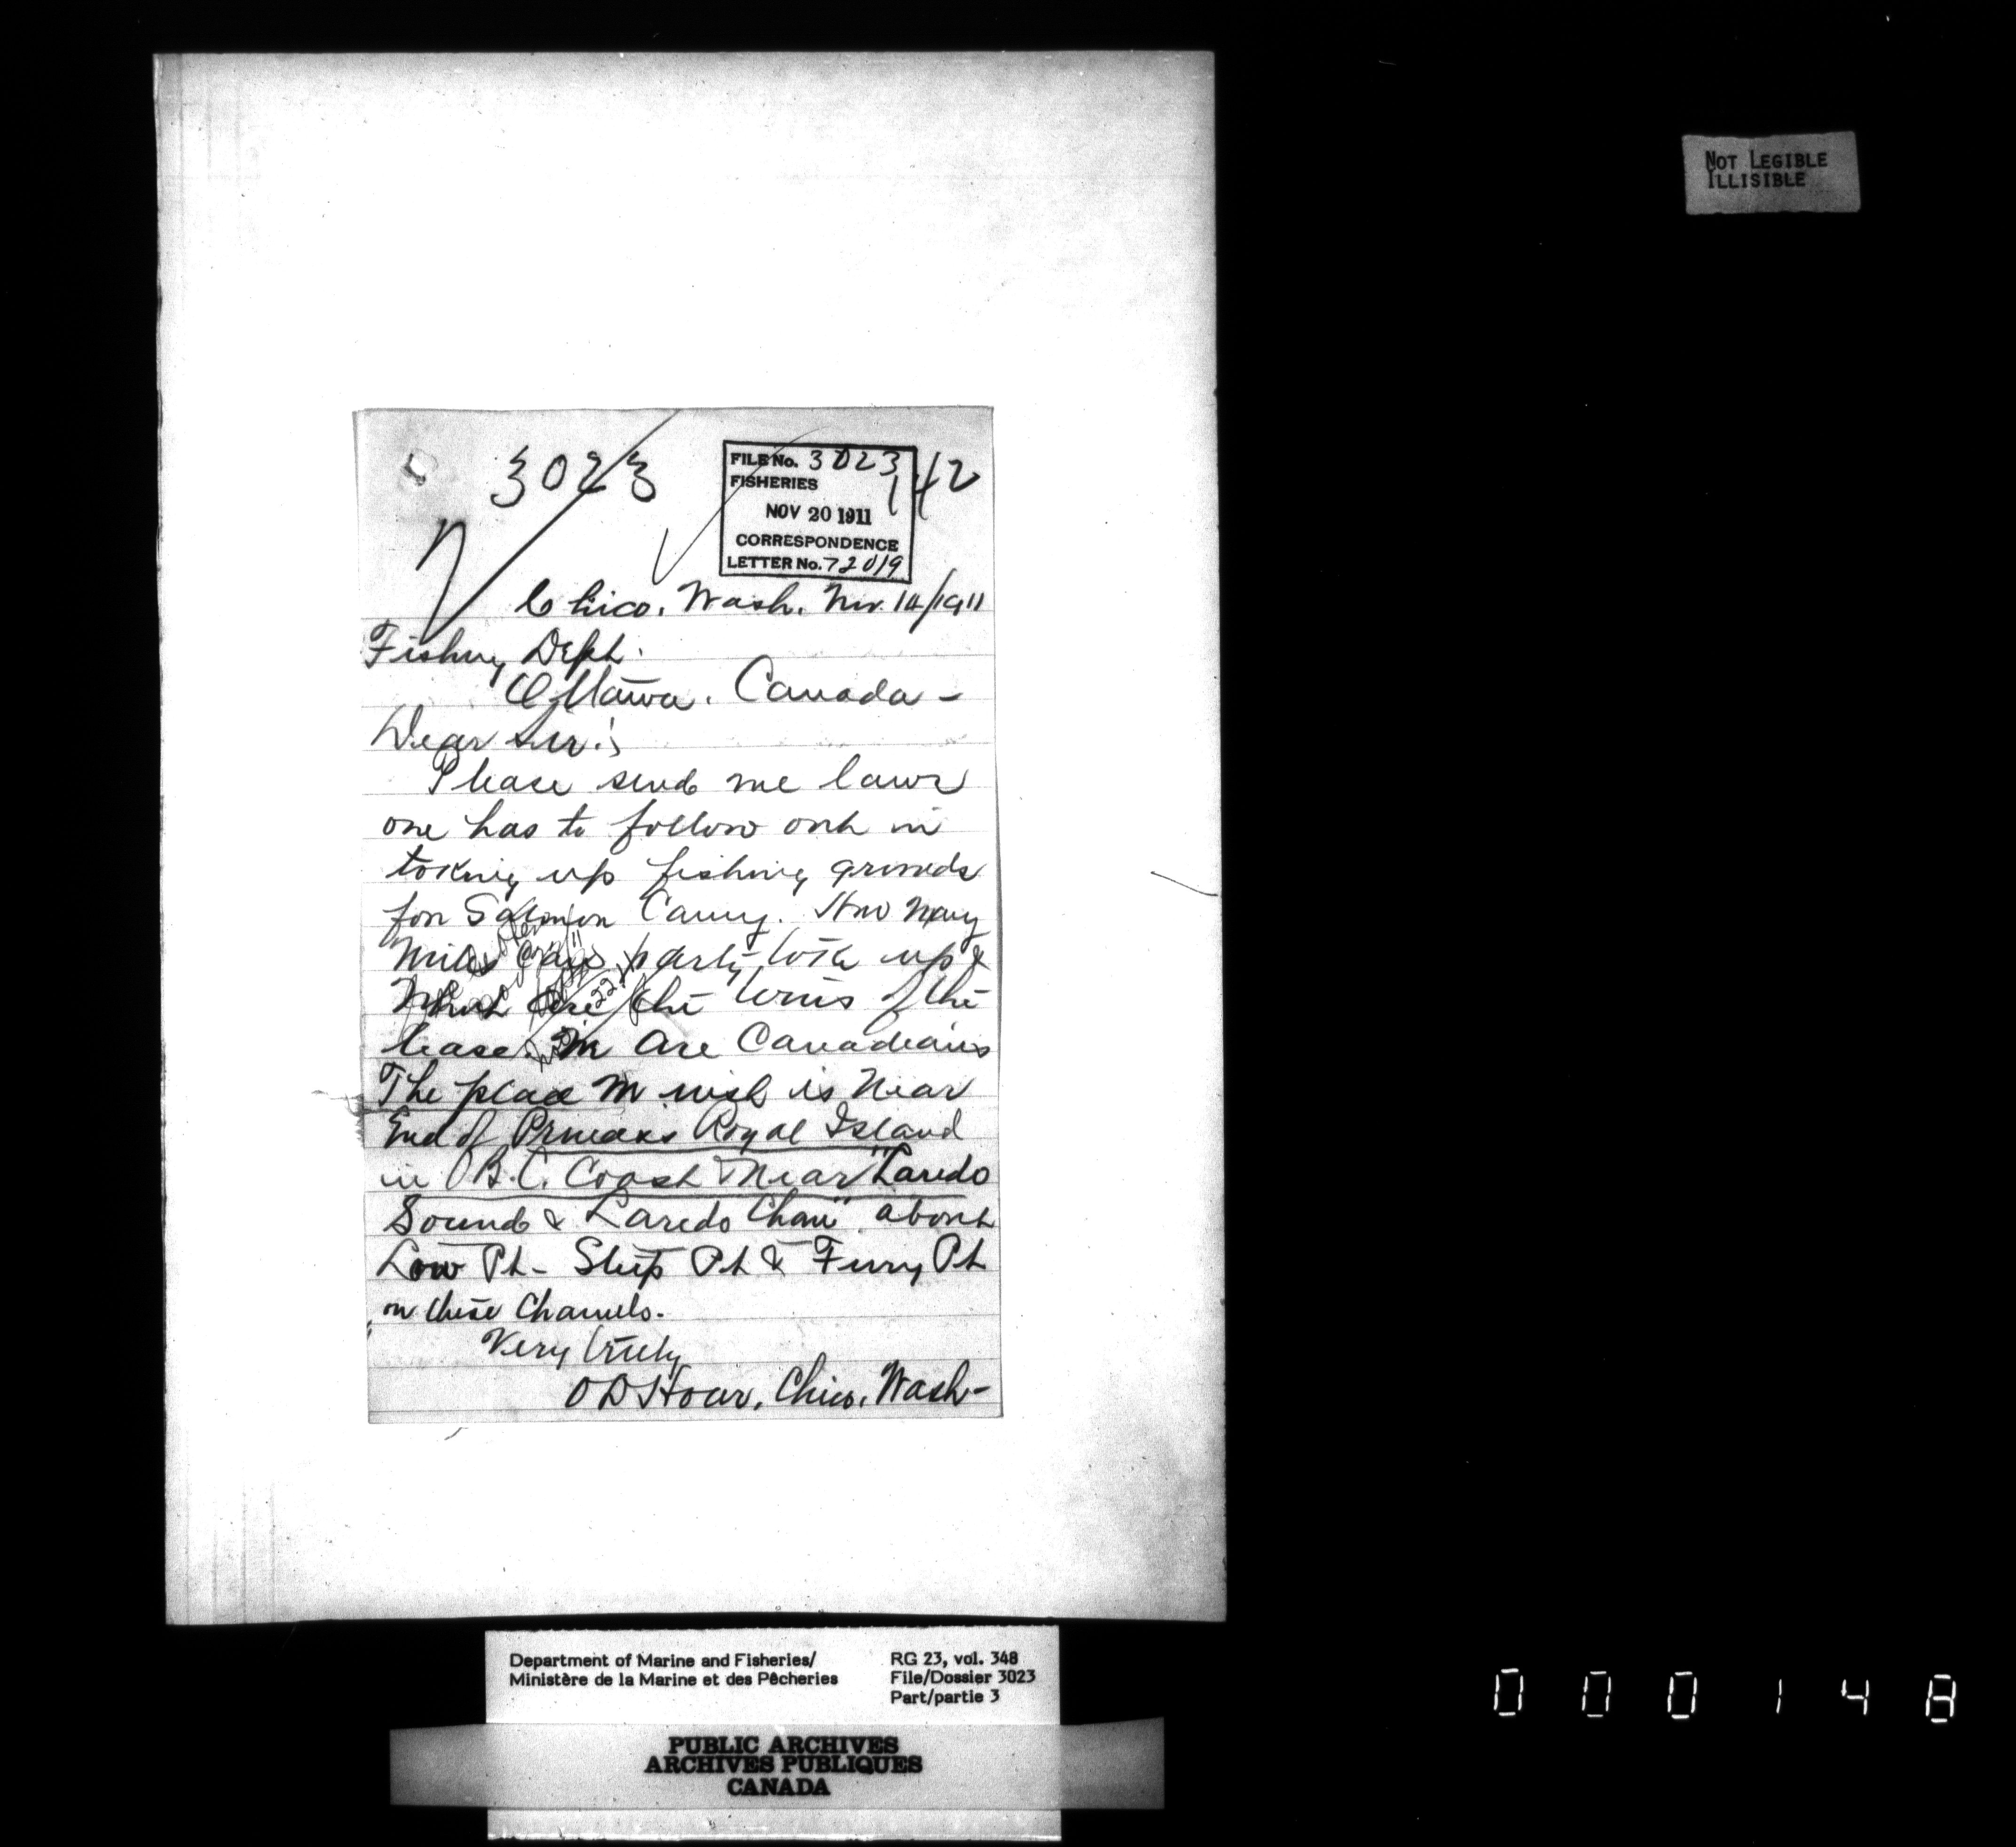 NOT LEGIBLE
ILLISIBLE
3023
FILE No. 3023
FISHERIES
142
NOV 20 1911
CORRESPONDENCE
LETTER No. 72019
Chico, Wash. Nov. 14/1911
Fishing Dept.
Ottawa. Canada -
Dear Sir:
Please send me laws
one has to follow out in
taking up fishing grounds
for Salmon Canry. How many
miles can party take up &
What are the terms of the
lease. We are Canadians
The place we wish is Near
End of Princess Royal Island
in B.C. Coast Near "Laredo
Sound & Laredo Chan" about
Low Pt - Steep Pt &
Pt
on these Channels.
Very truly
O D Hoar, Chico, Wash-
Department of Marine and Fisheries/
Ministère de la Marine et des Pêcheries
RG 23, vol. 348
File/Dossier 3023
Part/partie 3
PUBLIC ARCHIVES
ARCHIVES PUBLIQUES
CANADA
000148